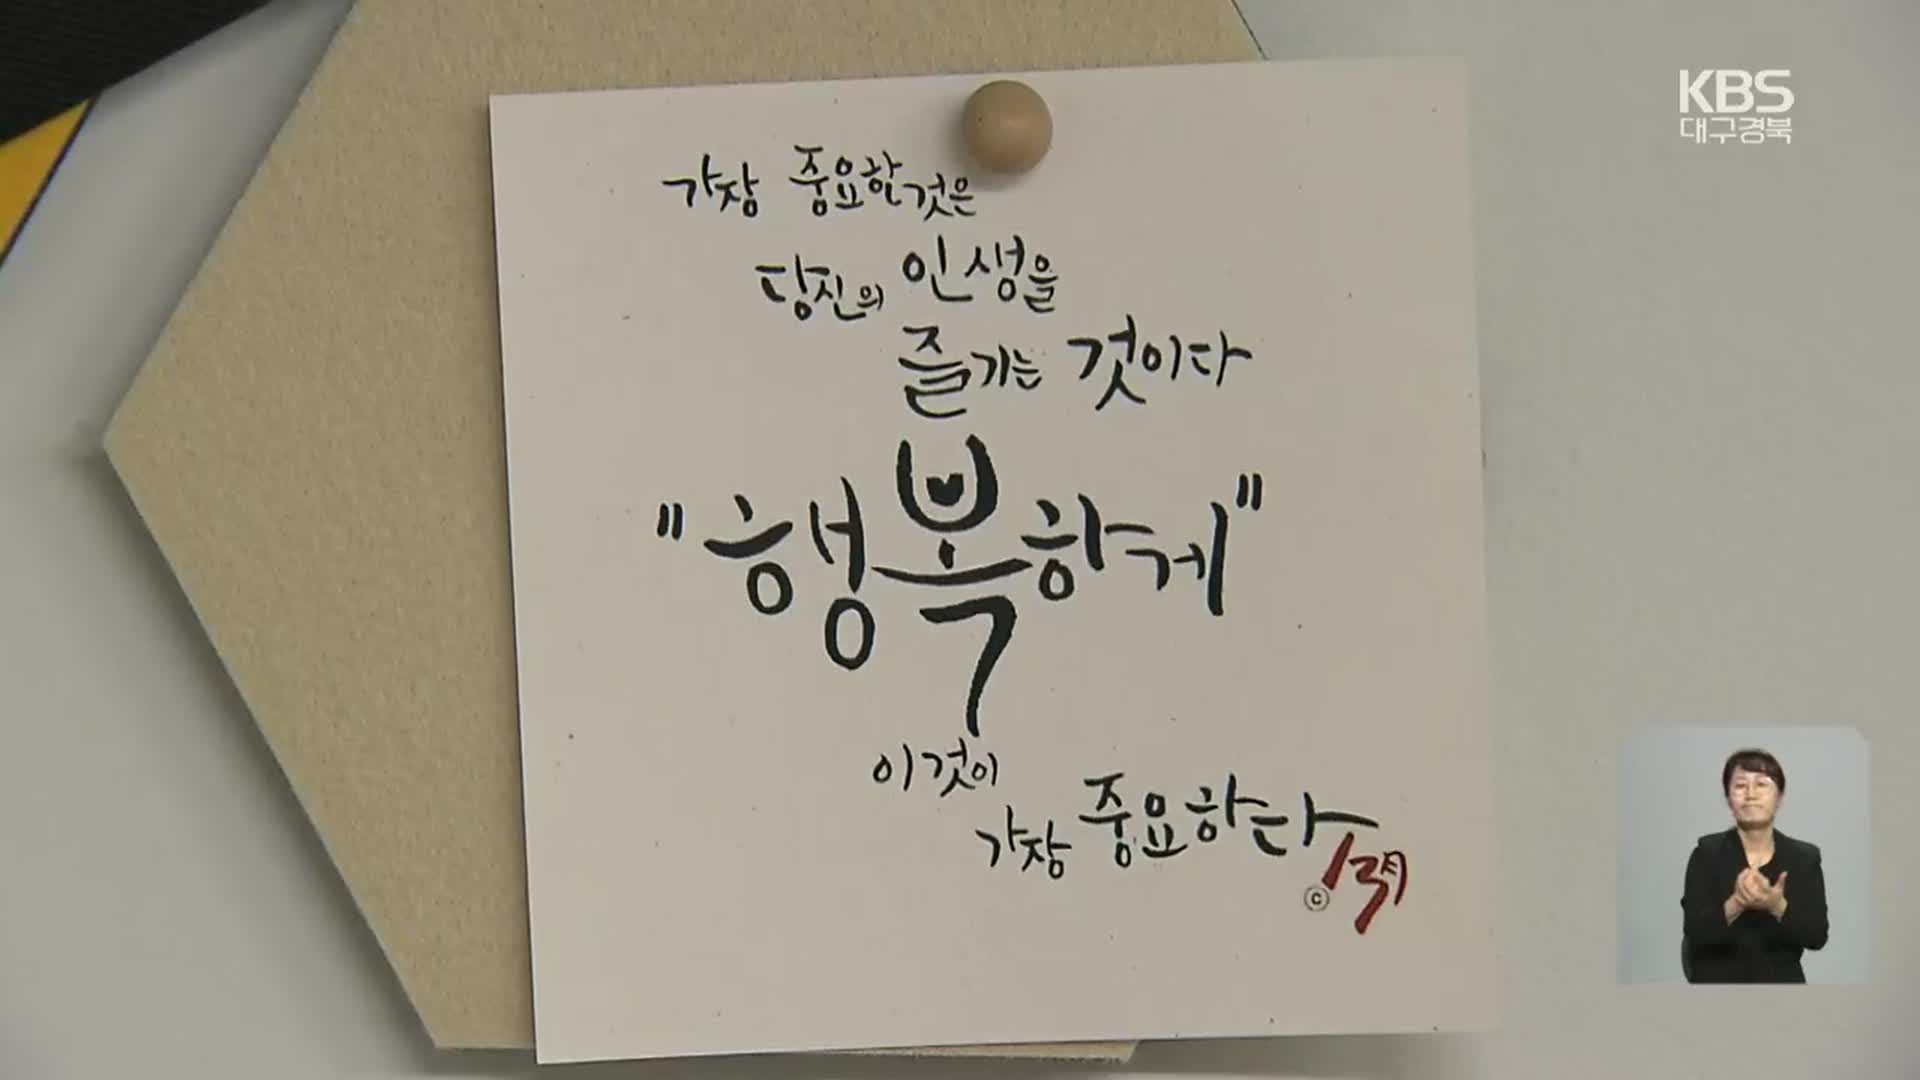 KBS
대구경북
가장 중요한 것은
당신의 인생을
즐기는 것이다
"행복하게"
이것이
가장 중요하다
©